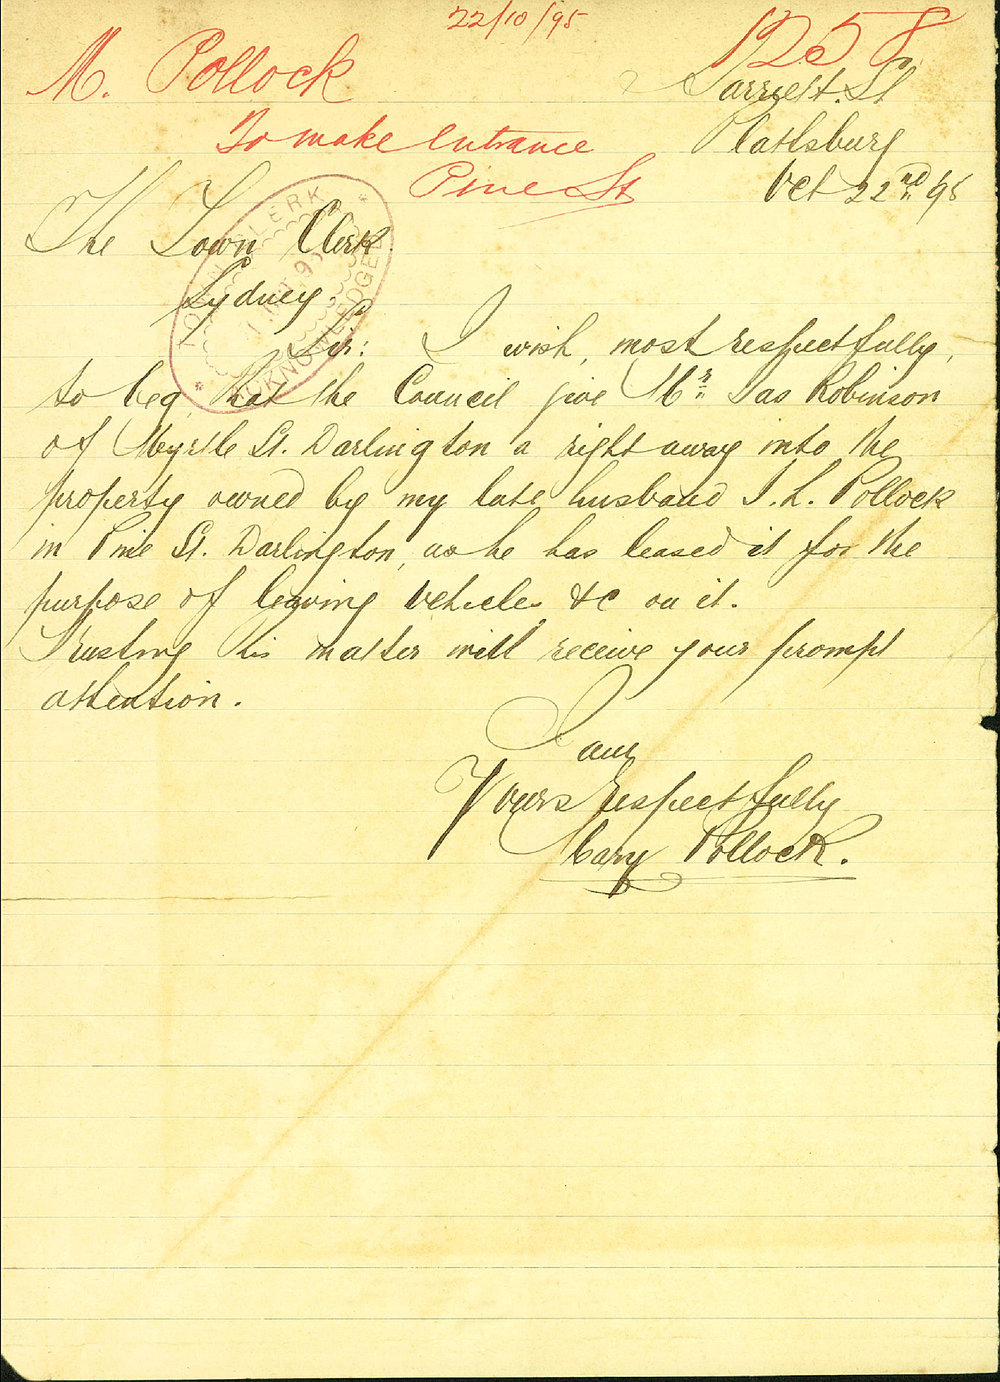 22/10/95
1258
M. Pollock
To make entrance
Pine St
St
Plattsburg
Oct 22nd 95
The Town Clerk
Sydney
TOWN CLERK
ACKNOWLEDGED
Sir: I wish, most respectfully,
to beg, that the Council give Mr Jas Robinson
of Myrtle St. Darlington a right away into the
property owned by my late husband J. L. Pollock
in Pine St. Darlington, as he has leased it for the
purpose of leaving vehicles &c on it.
Trusting this matter will receive your prompt
attention.
I am
Yours respectfully
Mary Pollock.